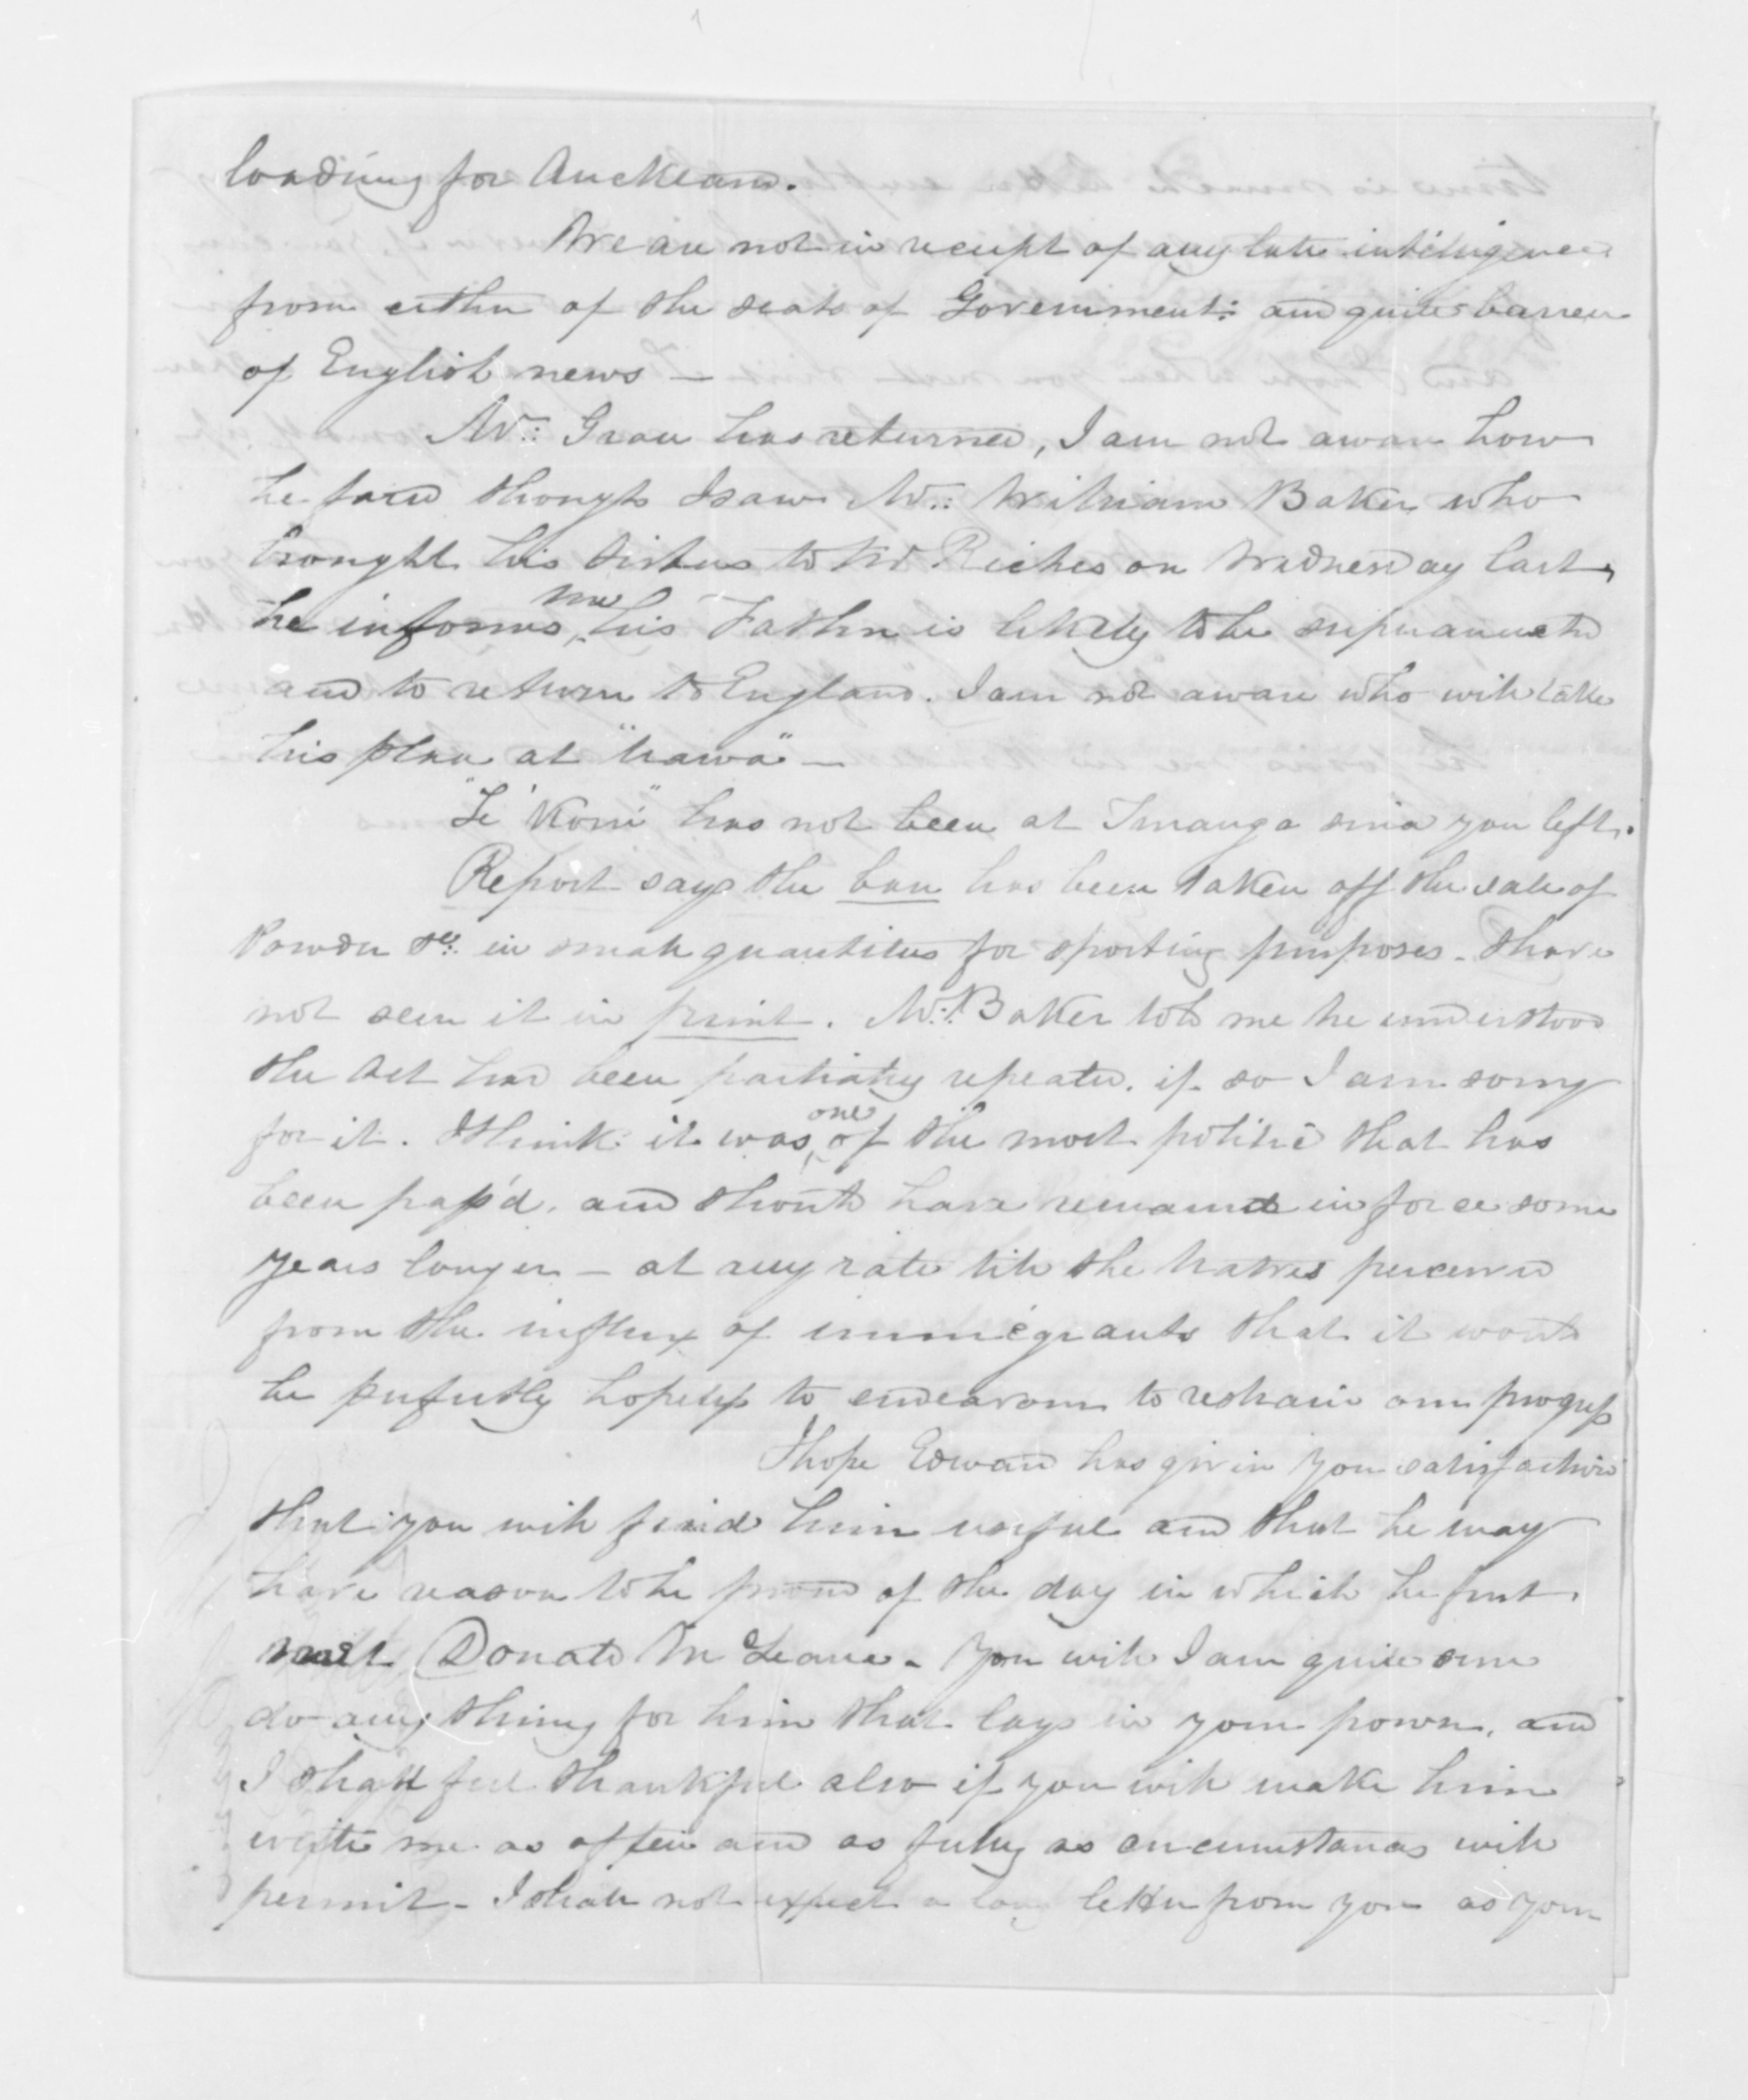 loading for Auckland.
We are not in receipt of any late intelligence
from either of the seats of Government: and quite barren
of English news —
Mr: Grau has returned, I am not aware how
he fared though I saw Mr: William Baker who
brought his sisters to Mr Riches on Wednesday last,
he informs me his Father is likely to be superanuated
and to return to England. I am not aware who will take
his place at "Uawa" —
"Te Kani" has not been at Turanga since you left.
Report says the ban has been taken off the sale of
Powder &c: in small quantities for sporting purposes. I have
not seen it in print. Mr: Baker told me he understood
the Act had been partially repealed, if so I am sorry
for it. I think it was one of the most politic that has
been pass'd, and should have remained in force some
years longer — at any rate till the Natives perceived
from the influx of immigrants that it would
be perfectly hopeless to endeavour to restrain our progress
I hope Edward has given you satisfaction
that you will find him useful and that he may
have reason to be proud of the day in which he first
met Donald McLeane. You will I am quite sure
do any thing for him that lays in your power, and
I shall feel thankful also if you will make him
write me as often and as fully as circumstances will
permit - I shall not expect a long letter from you as your